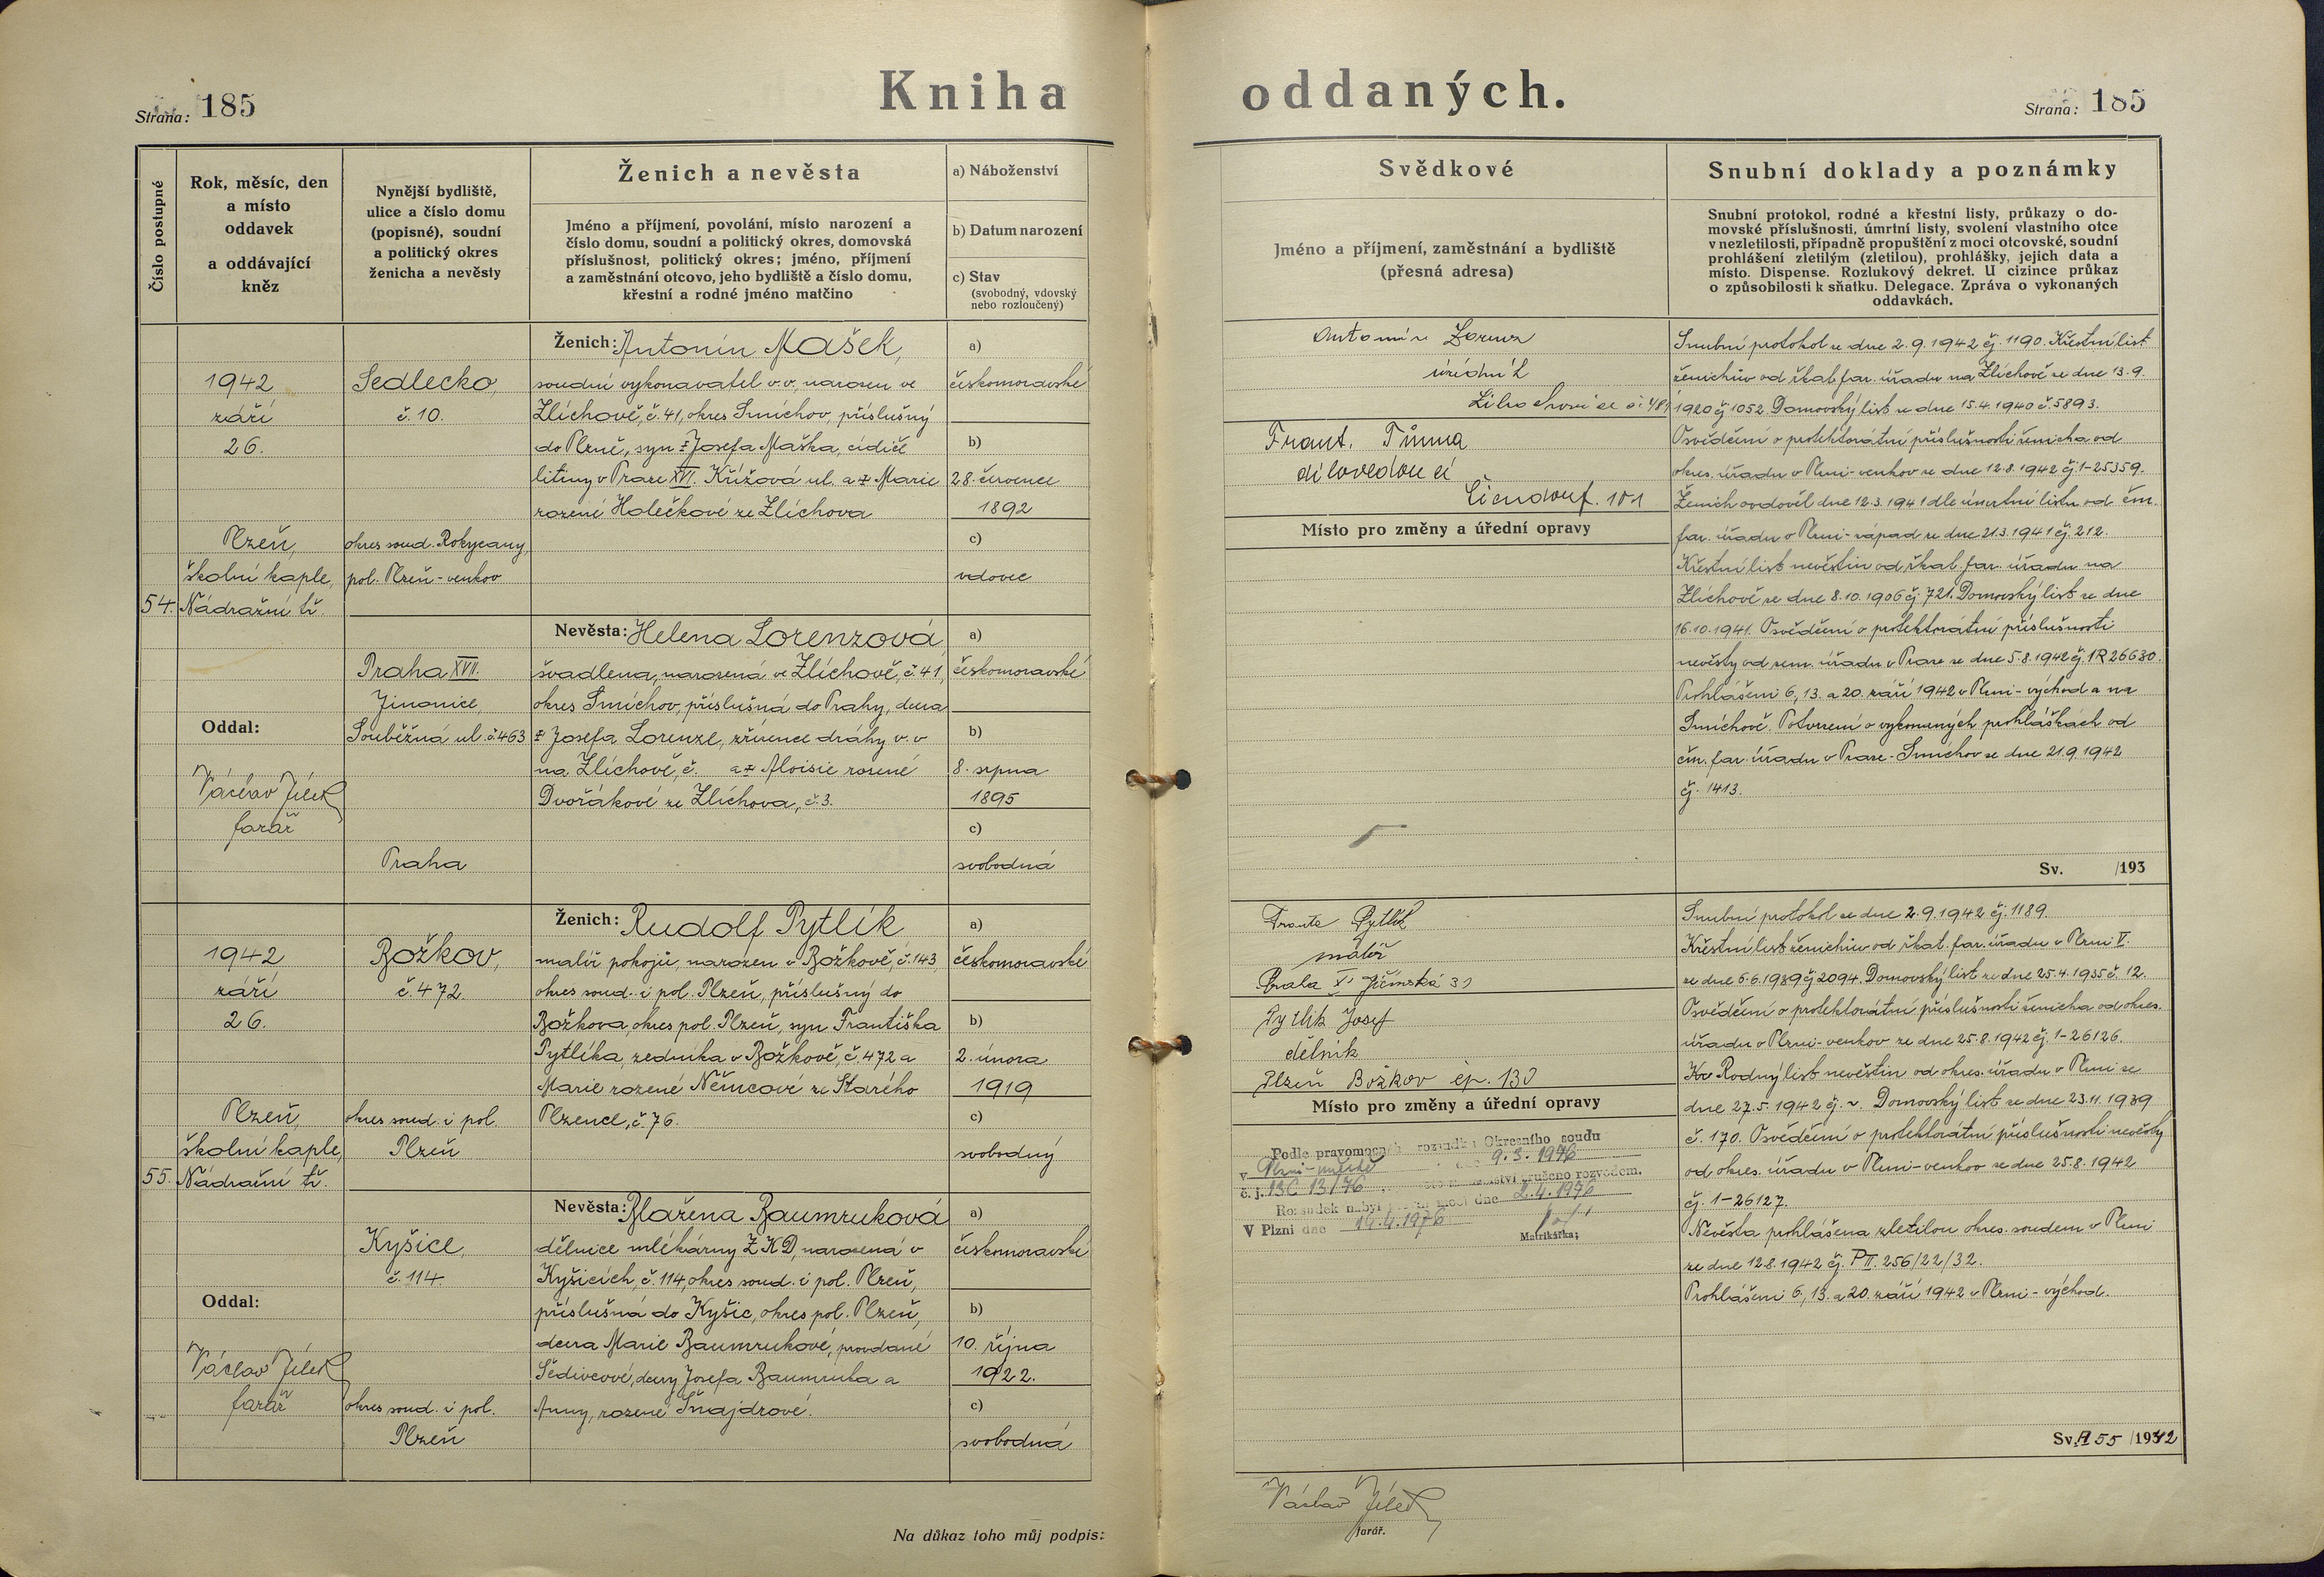 Kniha oddaných.
Strana: 185
Strana: 185
Číslo postupné
Rok, měsíc, den
a místo
oddavek
a oddávající
kněz
Nynější bydliště,
ulice a číslo domu
(popisné), soudní
a politický okres
ženicha a nevěsty
Ženich a nevěsta
Jméno a příjmení, povolání, místo narození a
číslo domu, soudní a politický okres, domovská
příslušnost, politický okres; jméno, příjmení
a zaměstnání otcovo, jeho bydliště a číslo domu,
křestní a rodné jméno matčino
a) Náboženství
b) Datum narození
c) Stav
(svobodný, vdovský
nebo rozloučený)
Svědkové
Jméno a příjmení, zaměstnání a bydliště
(přesná adresa)
Snubní doklady a poznámky
Snubní protokol, rodné a křestní listy, průkazy o do-
movské příslušnosti, úmrtní listy, svolení vlastního otce
v nezletilosti, případně propuštění z moci otcovské, soudní
prohlášení zletilým (zletilou), prohlášky, jejich data a
místo. Dispense. Rozlukový dekret. U cizince průkaz
o způsobilosti k sňatku. Delegace. Zpráva o vykonaných
oddavkách.
54.
1942
září
26.
Plzeň,
školní kaple,
Nádražní tř.
Oddal:
Václav Jílek
farář
Sedlecko,
č. 10.
okres soud. Rokycany,
pol. Plzeň-venkov
Praha XVII.
Jinonice,
Souběžná ul. č. 463
Praha
Ženich: Antonín Mašek,
soudní vykonavatel v.v., narozen ve
Zlíchově, č. 41, okres Smíchov, příslušný
do Plzně, syn ‡ Josefa Maška, cídiče
litiny v Praze XVI. Křížová ul. a ‡ Marie
rozené Holečkové ze Zlíchova
Nevěsta: Helena Lorenzová
švadlena, narozená ve Zlíchově, č. 41,
okres Smíchov, příslušná do Prahy, dcera
‡ Josefa Lorenze, zřízence dráhy v. v.
na Zlíchově, č. a ‡ Aloisie rozené
Dvořákové ze Zlíchova, č. 3.
a)
českomoravské
b)
28. července
1892
c)
vdovec
a)
českomoravské
b)
8. srpna
1895
c)
svobodná
Antonín Lorenz
úředník
Frant. Tůma
dílovedoucí
Místo pro změny a úřední opravy
Snubní protokol ze dne 2.9.1942 čj. 1190. Křestní list
ženichův od řkat. far. úřadu na Zlíchově ze dne 13.9.
1920 čj 1052. Domovský list ze dne 15.4.1940 č. 5893.
Osvědčení o protektorátní příslušnosti ženicha od
okres. úřadu v Plzni-venkov ze dne 12.8.1942 čj. 1-25359.
Ženich ovdověl dne 12.3.1941 dle úmrtní listu od čm.
far. úřadu v Plzni-západ ze dne 21.3.1941 čj. 212.
Křestní list nevěstin od řkat. far. úřadu na
Zlíchově ze dne 8.10.1906 čj. 721. Domovský list ze dne
16.10.1941. Osvědčení o protektorátní příslušnosti
nevěsty od zem. úřadu v Praze ze dne 5.8.1942 čj. 1R 26630.
Prohlášeni 6, 13. a 20. září 1942 v Plzni-východ a na
Smíchově. Potvrzení o vykonaných prohláškách od
čm. far. úřadu v Praze-Smíchov ze dne 21.9.1942
čj. 1413.
Sv. /193
55.
1942
září
26.
Plzeň,
školní kaple,
Nádražní tř.
Oddal:
Václav Jílek
farář
Božkov,
č. 472.
okres soud. i pol.
Plzeň
Kyšice,
č. 114.
okres soud. i pol.
Plzeň
Ženich: Rudolf Pytlík
malíř pokojů, narozen v Božkově, č. 143,
okres soud. i pol. Plzeň, příslušný do
Božkova, okres pol. Plzeň, syn Františka
Pytlíka, zedníka v Božkově, č. 472 a
Marie rozené Němcové ze Starého
Plzence, č. 76.
Nevěsta: Blažena Baumruková
dělnice mlékárny ZKD, narozená v
Kyšicích, č. 114, okres soud. i pol. Plzeň,
příslušná do Kyšic, okres pol. Plzeň,
dcera Marie Baumrukové, provdané
Šedivcové, dcery Josefa Baumruka a
Anny, rozené Šnajdrové.
a)
českomoravské
b)
2. února
1919
c)
svobodný
a)
českomoravské
b)
10. října
1922.
c)
svobodná
Pytlík
malíř
Pytlík Josef
dělník
Plzeň Božkov čp. 130
Místo pro změny a úřední opravy
Podle pravomocného rozsudku Okresního soudu
v Plzni-městě dne 9.3.1976
č. j. 13C 13/76 manželství zrušeno rozvodem.
Rozsudek nabyl právní moci dne 2.4.1976
V Plzni dne 14.4.1976
Matrikářka:
Snubní protokol ze dne 2.9.1942 čj. 1189.
Křestní list ženichův od řkat. far. úřadu v Plzni V.
ze dne 6.6.1939 čj 2094. Domovský list ze dne 25.4.1935 č. 12.
Osvědčení o protektorátní příslušnosti ženicha od okres.
úřadu v Plzni-venkov ze dne 25.8.1942 čj. 1-26126.
Rodný list nevěstin od okres. úřadu v Plzni ze
dne 27.5.1942 čj. ~. Domovský list ze dne 23.11.1939
č. 170. Osvědčení o protektorátní příslušnosti nevěsty
od okres. úřadu v Plzni-venkov ze dne 25.8.1942
čj. 1-26127.
Nevěsta prohlášena zletilou okres. soudem v Plzni
ze dne 12.8.1942 čj. P II. 256/22/32.
Prohlášeni 6., 13. a 20. září 1942 v Plzni-východ.
Sv. A 55 /1942
Na důkaz toho můj podpis:
Václav Jílek
farář.